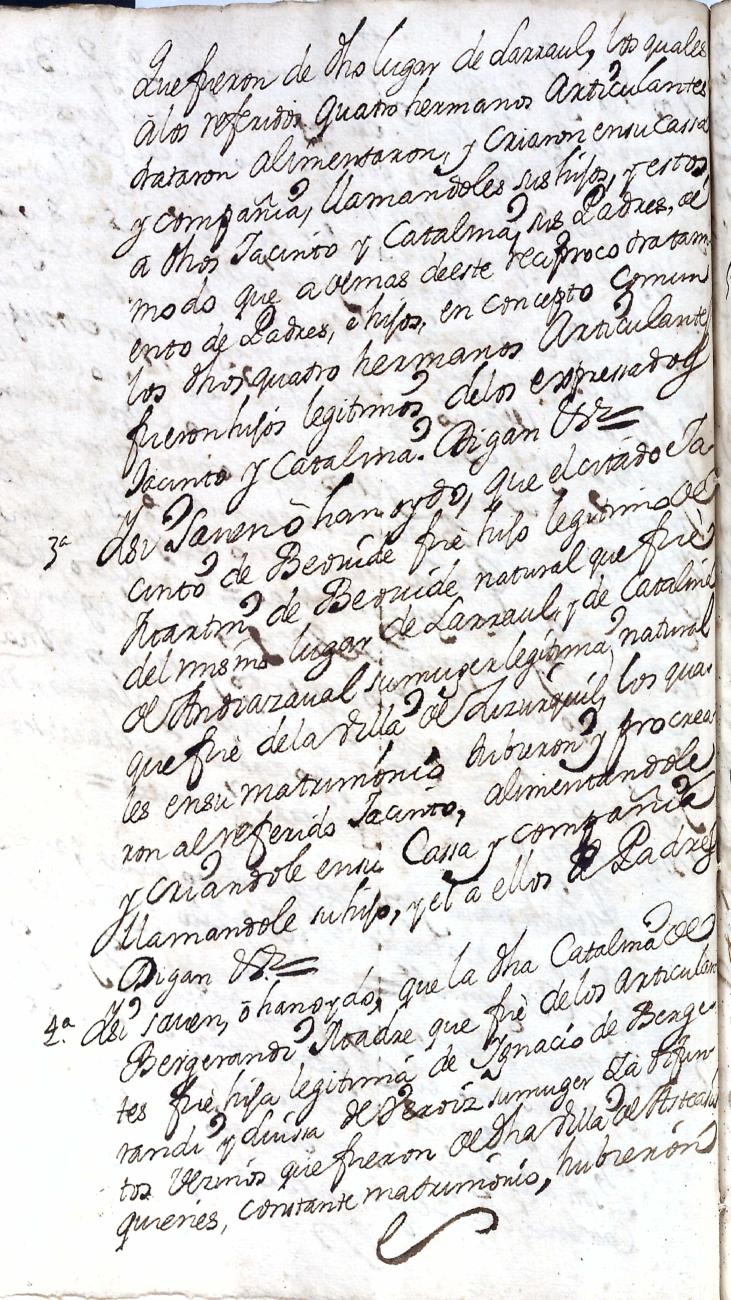 que fueron de dho lugar de Larraul, los quales
a los referidos quatro hermanos Articulantes
trataron alimentaron, y criaron en su cassa
y compañia, llamandoles sus hijos, y estos
a dhos Jacinto y Catalina, sus Padres, de
modo que a demas de este reciproco tratam
ento de Padres, e hijos, en concepto comun
los dhos quatro hermanos Articulantes
fueron hijos legitimos de los expressados
Jacinto y Catalina. Digan &ª
3ª Ysi saven ô han oydo, que el citado Ja
cinto de Beovide fue hijo legitimo de
Martin de Beovide natural que fue
del mismo lugar de Larraul, y de Catalina
de Andiazaval su muger legitima natural
que fue de la Villa de Lizurquil, los qua
les en su matrimonio hubieron y procrea
ron al referido Jacinto, alimentandole
y criandole en su Cassa y compañia
llamandole su hijo, y el a ellos de Padres
Digan &ª
4ª Ysi saven, ô han oydo, que la dha Catalina de
Bergerandi Madre que fue de los Articulan
tes fue hija legitima de Ygnacio de Berge
randi y de su muger Difun
tos vezinos que fueron de dha Villa de Asteasu
quienes, constante matrimonio, hubieron